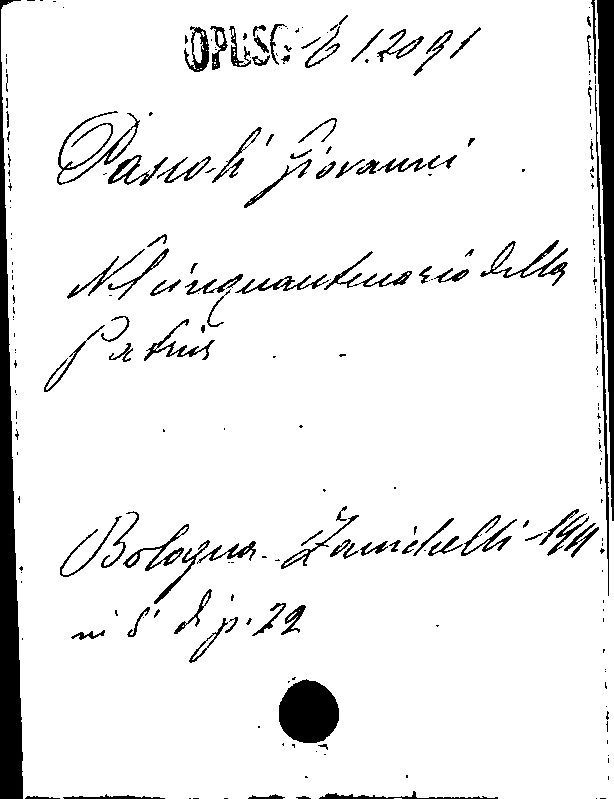 OPUSC E 1.2091
Pascoli Giovanni
Nel cinquantenario della
patria
Bologna - Zanichelli - 1911
in 8° di p. 22